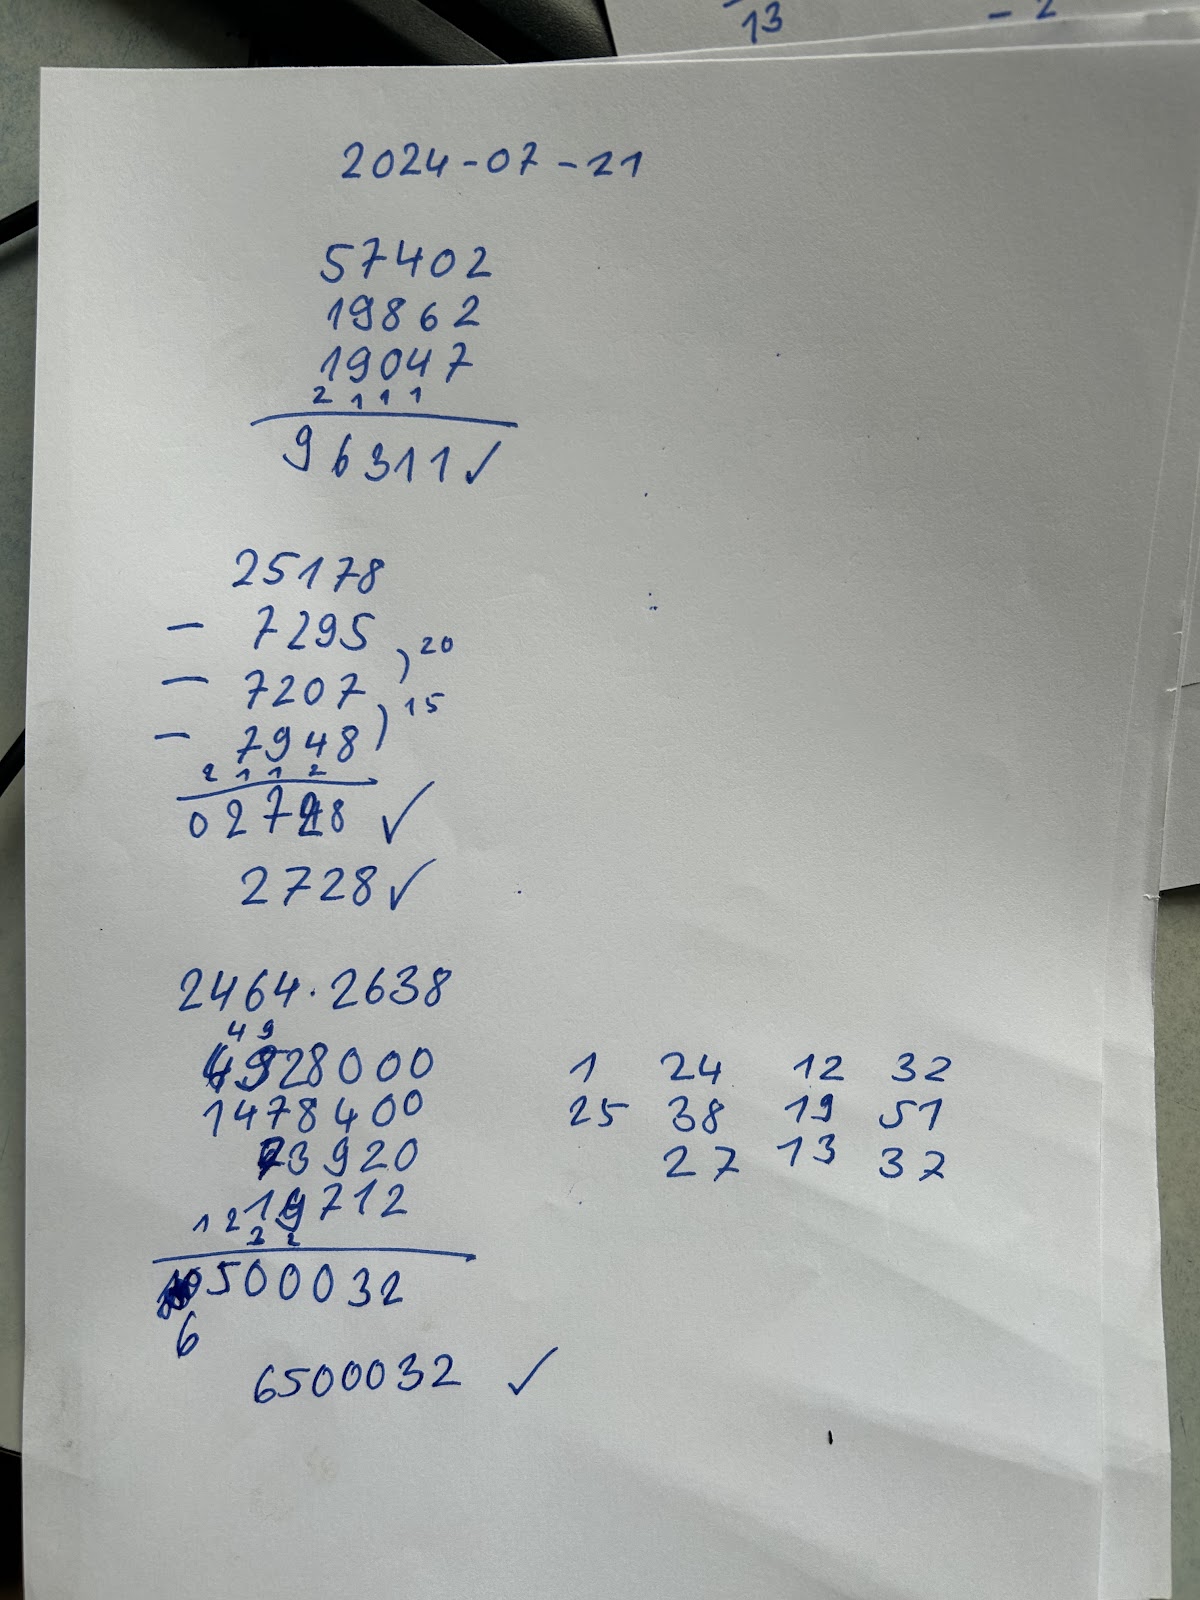 13 - 2
2024-07-21
57402
19862
19047
2 1 1 1
96311✓
25178
- 7295
20
- 7207
15
- 7948
2 1 1 2
02728 ✓
2728✓
2464·2638
4 9
4928000 1 24 12 32
1478400 25 38 19 51
73920 27 13 37
19712
1 2 2 2
500032
6
6500032 ✓